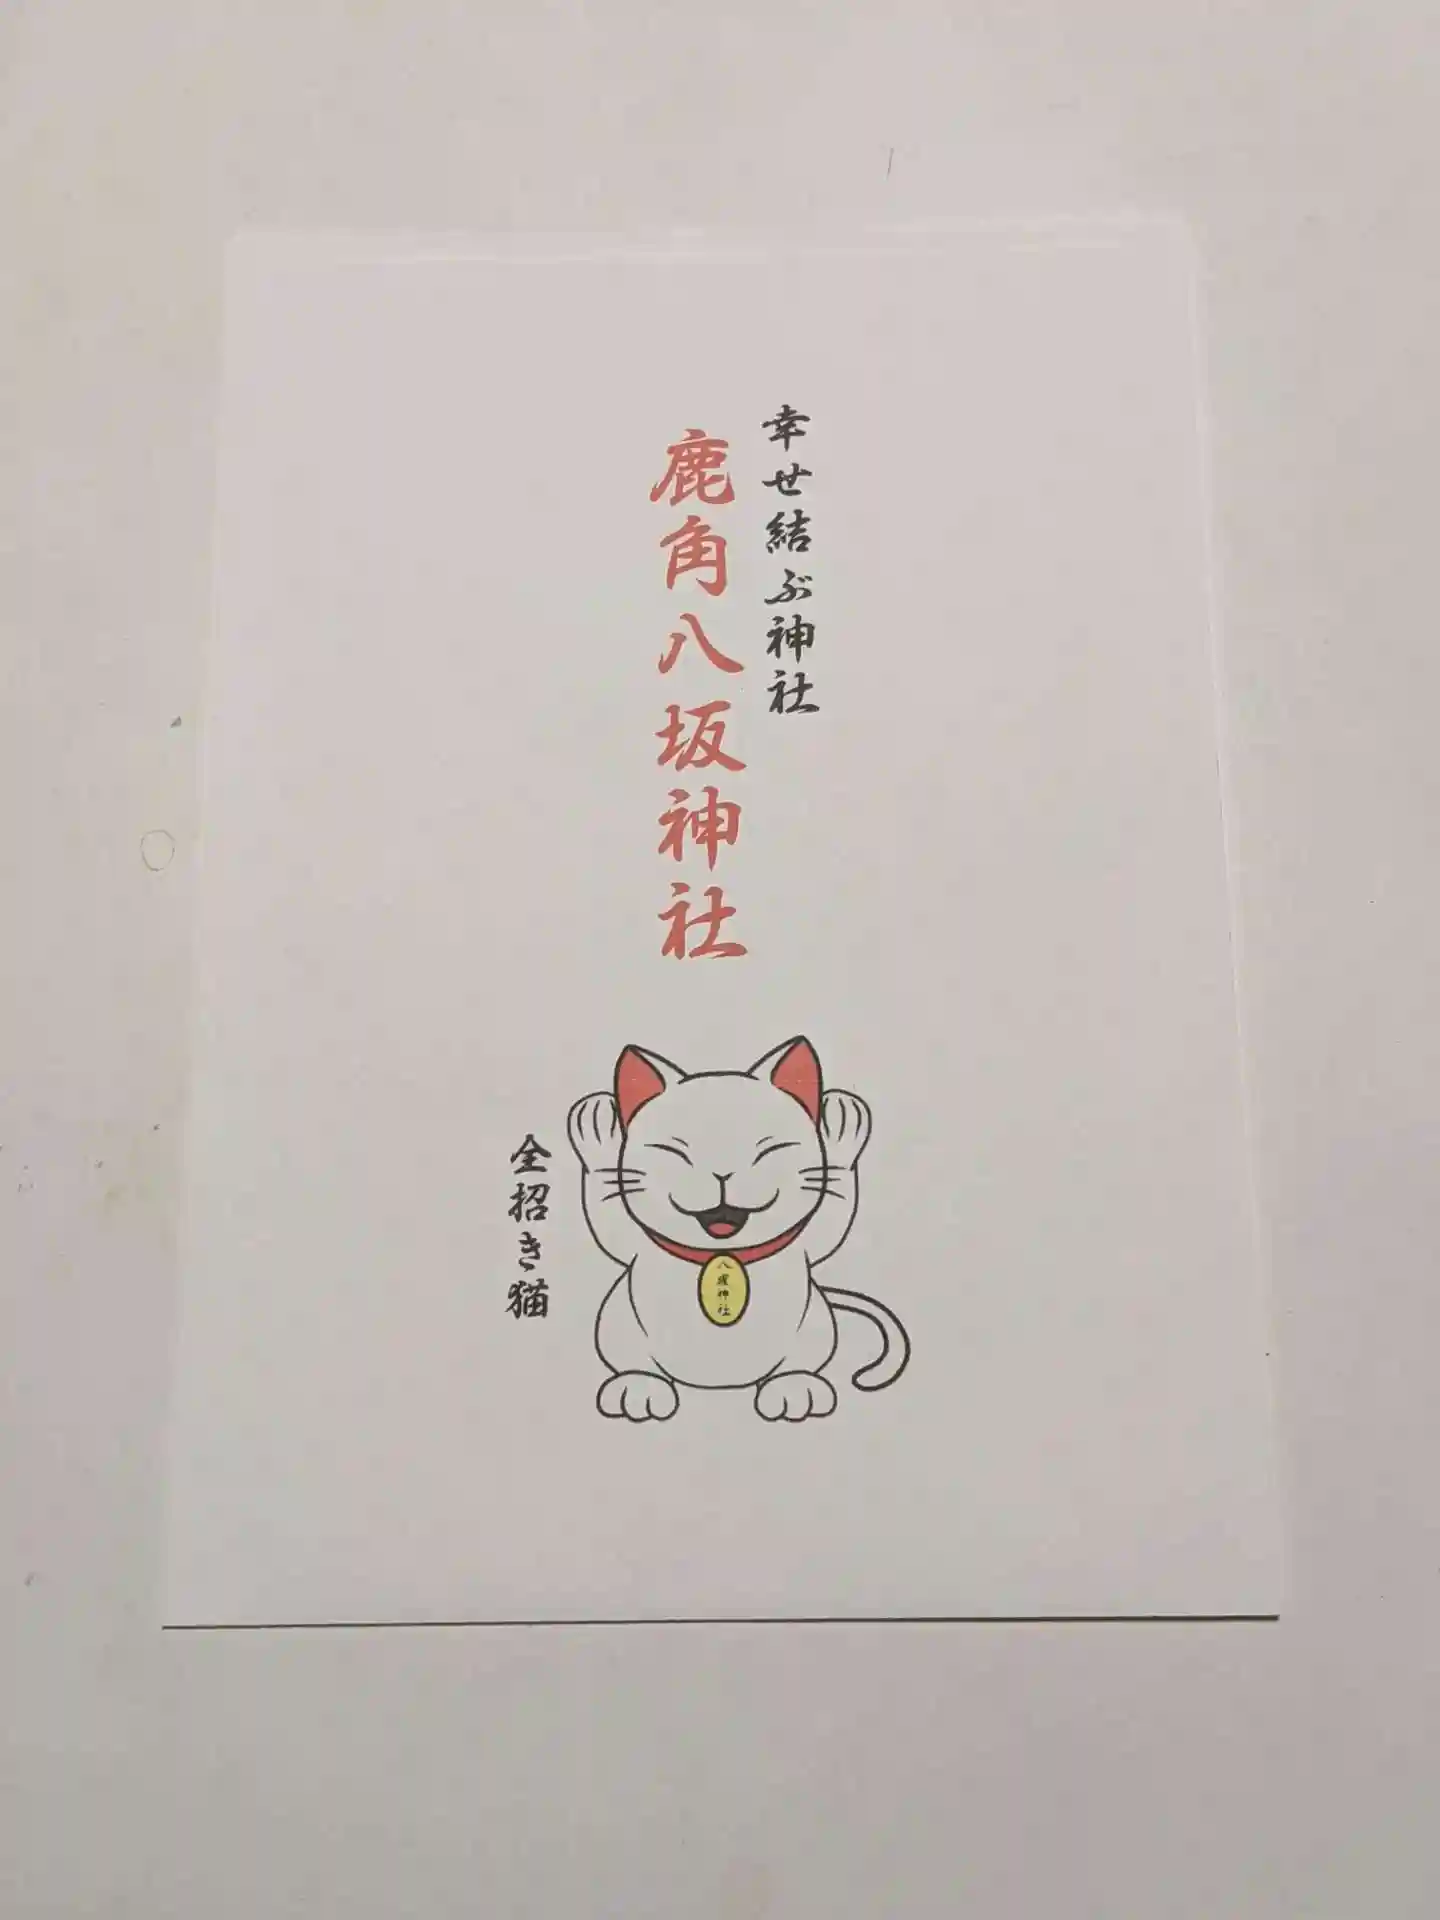 幸せ結ぶ神社
鹿角八坂神社
全招き猫
八坂神社